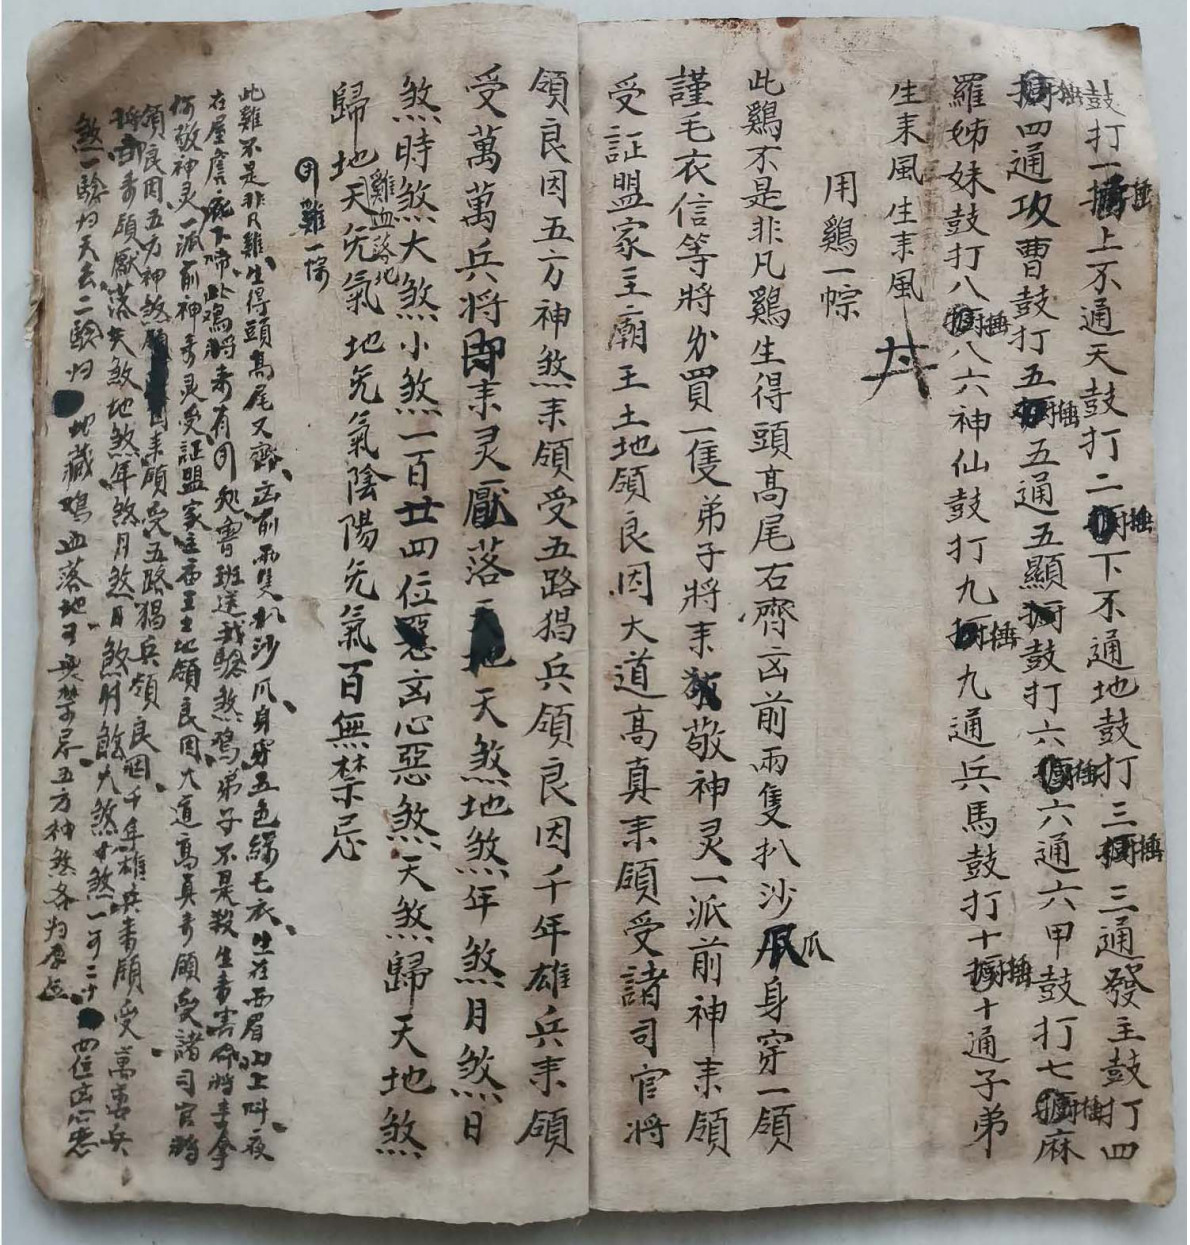 鼓打一捶上不通天鼓打二捶下不通地鼓打三捶三通發主鼓打四
捶四通攻曹鼓打五捶五通五顯鼓打六捶六通六甲鼓打七捶麻
羅姊妹鼓打八捶八六神仙鼓打九捶九通兵馬鼓打十捶十通子弟
生耒風生耒風
用鷄一㡓
此鷄不是非凡鷄生得頭髙尾石齊㐫前兩隻扒沙爪身穿一領
謹毛衣信等將分買一隻弟子將耒敬神灵一派前神耒領
受証盟家主廟王土地領良因大道髙真耒領受諸司官將
領良因五方神煞耒領受五路猖兵領良因千年雄兵耒領
受萬萬兵将即耒灵厭落天煞地煞年煞月煞日
煞時煞大煞小煞一百廿四位㐫心惡煞天煞歸天地煞
歸地天旡氣地旡氣陰陽旡氣百無禁忌
雞血落地
雞一條
此雞不是非凡雞生得頭髙尾又齊㐫前兩隻扒沙爪身穿五色綠毛衣生在西眉山上叫夜
在屋簷底下啼此鸡將耒有魯班送我驗煞鸡弟子不是殺生耒害命将耒拿
何敬神灵一派前神耒灵受証盟家主庙王土地領良因大道髙真耒領受諸司官將
領良因五方神煞耒領受五路猖兵領良因千年雄兵耒領受萬萬兵
将耒領厭落天煞地煞年煞月煞日煞时煞大煞小煞一百二十四位㐫心惡
煞一驗归天去二驗归地藏鸡血落地百無禁忌五方神煞各归原位